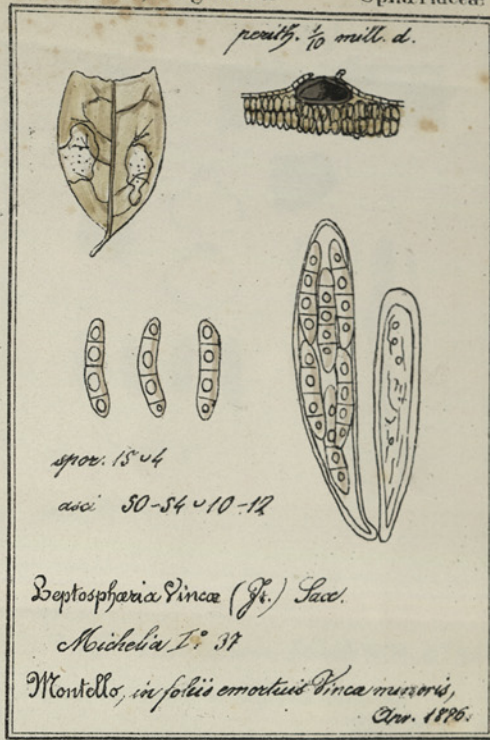 perith. 1/10 mill. d.
spor. 15 ◡ 4
asci 50-54 ◡ 10-12
Leptosphæria Vincæ (Fr.) Sacc.
Michelia I.° 37
Montello, in foliis emortuis Vincæ minoris,
Apr. 1896.